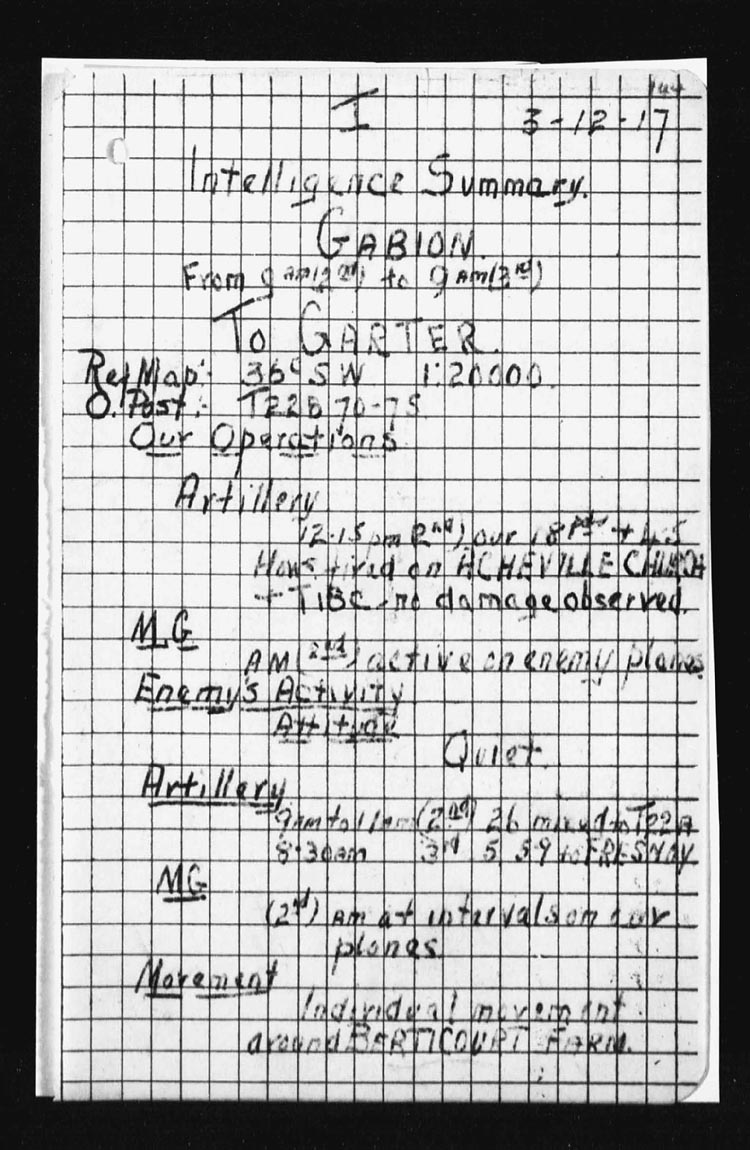 I
3-12-17
Intelligence Summary.
GABION.
From 9 AM (2nd) to 9 AM (3rd)
To GARTER.
Ref Map:- 36c SW 1:20000.
O. Post:- T22B 70-75
Our Operations
Artillery
12.15 pm (2nd) our 18 pdrs + 4.5
Hows fired on ACHEVILLE CHURCH
+ T18C - no damage observed.
M.G
AM (2nd) active on enemy planes
Enemy's Activity
Attitude
Quiet.
Artillery
9am to 11am (2nd) 26 mixed to T22A
8.30am 3rd 5 5.9 to FRESNOY
MG
(2nd) AM at intervals on our
planes.
Movement
Individual movement
around BERTICOURT FARM.